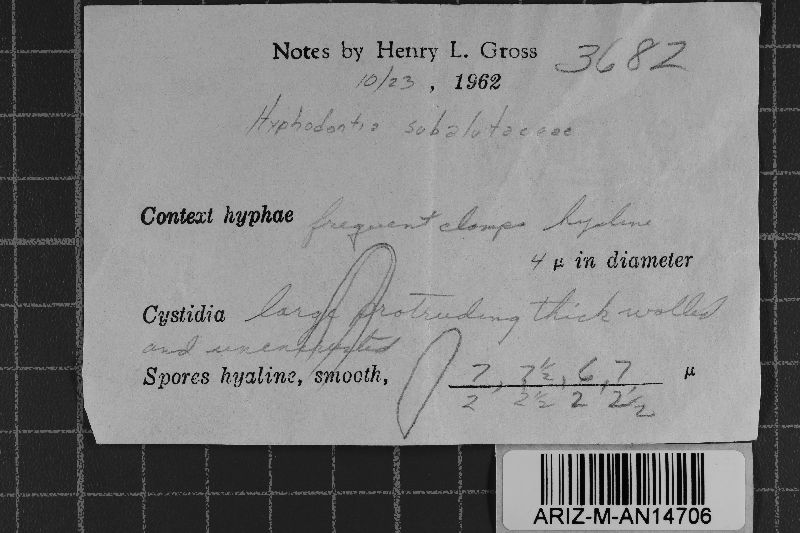 Notes by Henry L. Gross 3682
10/23, 1962
Hyphodontia subalutaceae
Context hyphae frequent clamps hyaline
4 µ in diameter
Cystidia large protruding thick walled
and unencrusted
Spores hyaline, smooth, 7/2, 7½/2½, 6/2, 7/2½ µ
ARIZ-M-AN14706